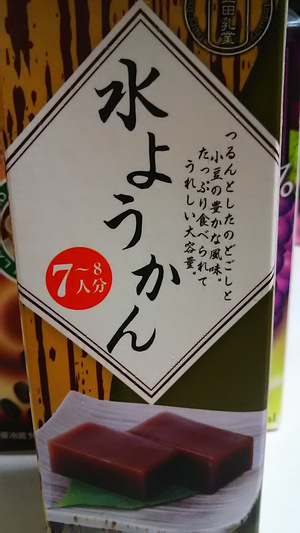 田乳業
水ようかん
つるんとしたのどごしと
小豆の豊かな風味。
たっぷり食べられて
うれしい大容量。
7～8
人分
%